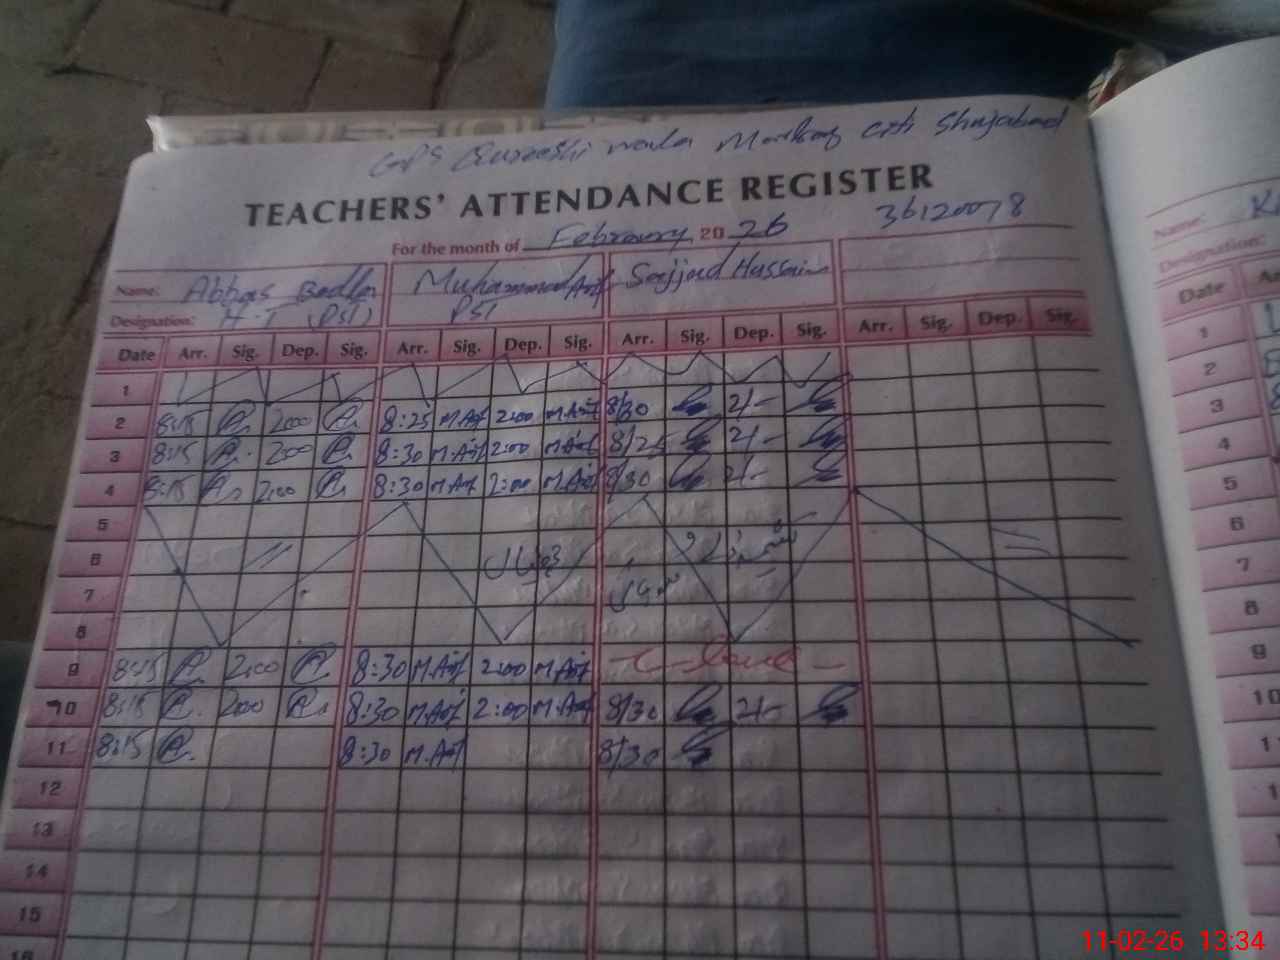 GPS Qureshi wala Markaz citi Shujabad
TEACHERS' ATTENDANCE REGISTER
36120078
For the month of February 20 26
Name: Abbas Muhammad Arif Sajjad Hussain
Designation: H.T (PST) PST
Date Arr. Sig. Dep. Sig. Arr. Sig. Dep. Sig. Arr. Sig. Dep. Sig. Arr. Sig. Dep. Sig.
1
2 8:15 2:00 8:25 M.Arif 2:00 M.Arif 8/30 2/-
3 8:15 2:00 8:30 M.Arif 2:00 M.Arif 8/25 2/-
4 8:15 2:00 8:30 M.Arif 2:00 M.Arif 8/30 2/-
5
6
7
8
9 8:15 2:00 8:30 M.Arif 2:00 M.Arif - C - leave -
10 8:15 2:00 8:30 M.Arif 2:00 M.Arif 8/30 2/-
11 8:15 8:30 M.Arif 8/30
12
13
14
15
16
Name:
Designation:
Date
1
2
3
4
5
6
7
8
9
10
11-02-26 13:34